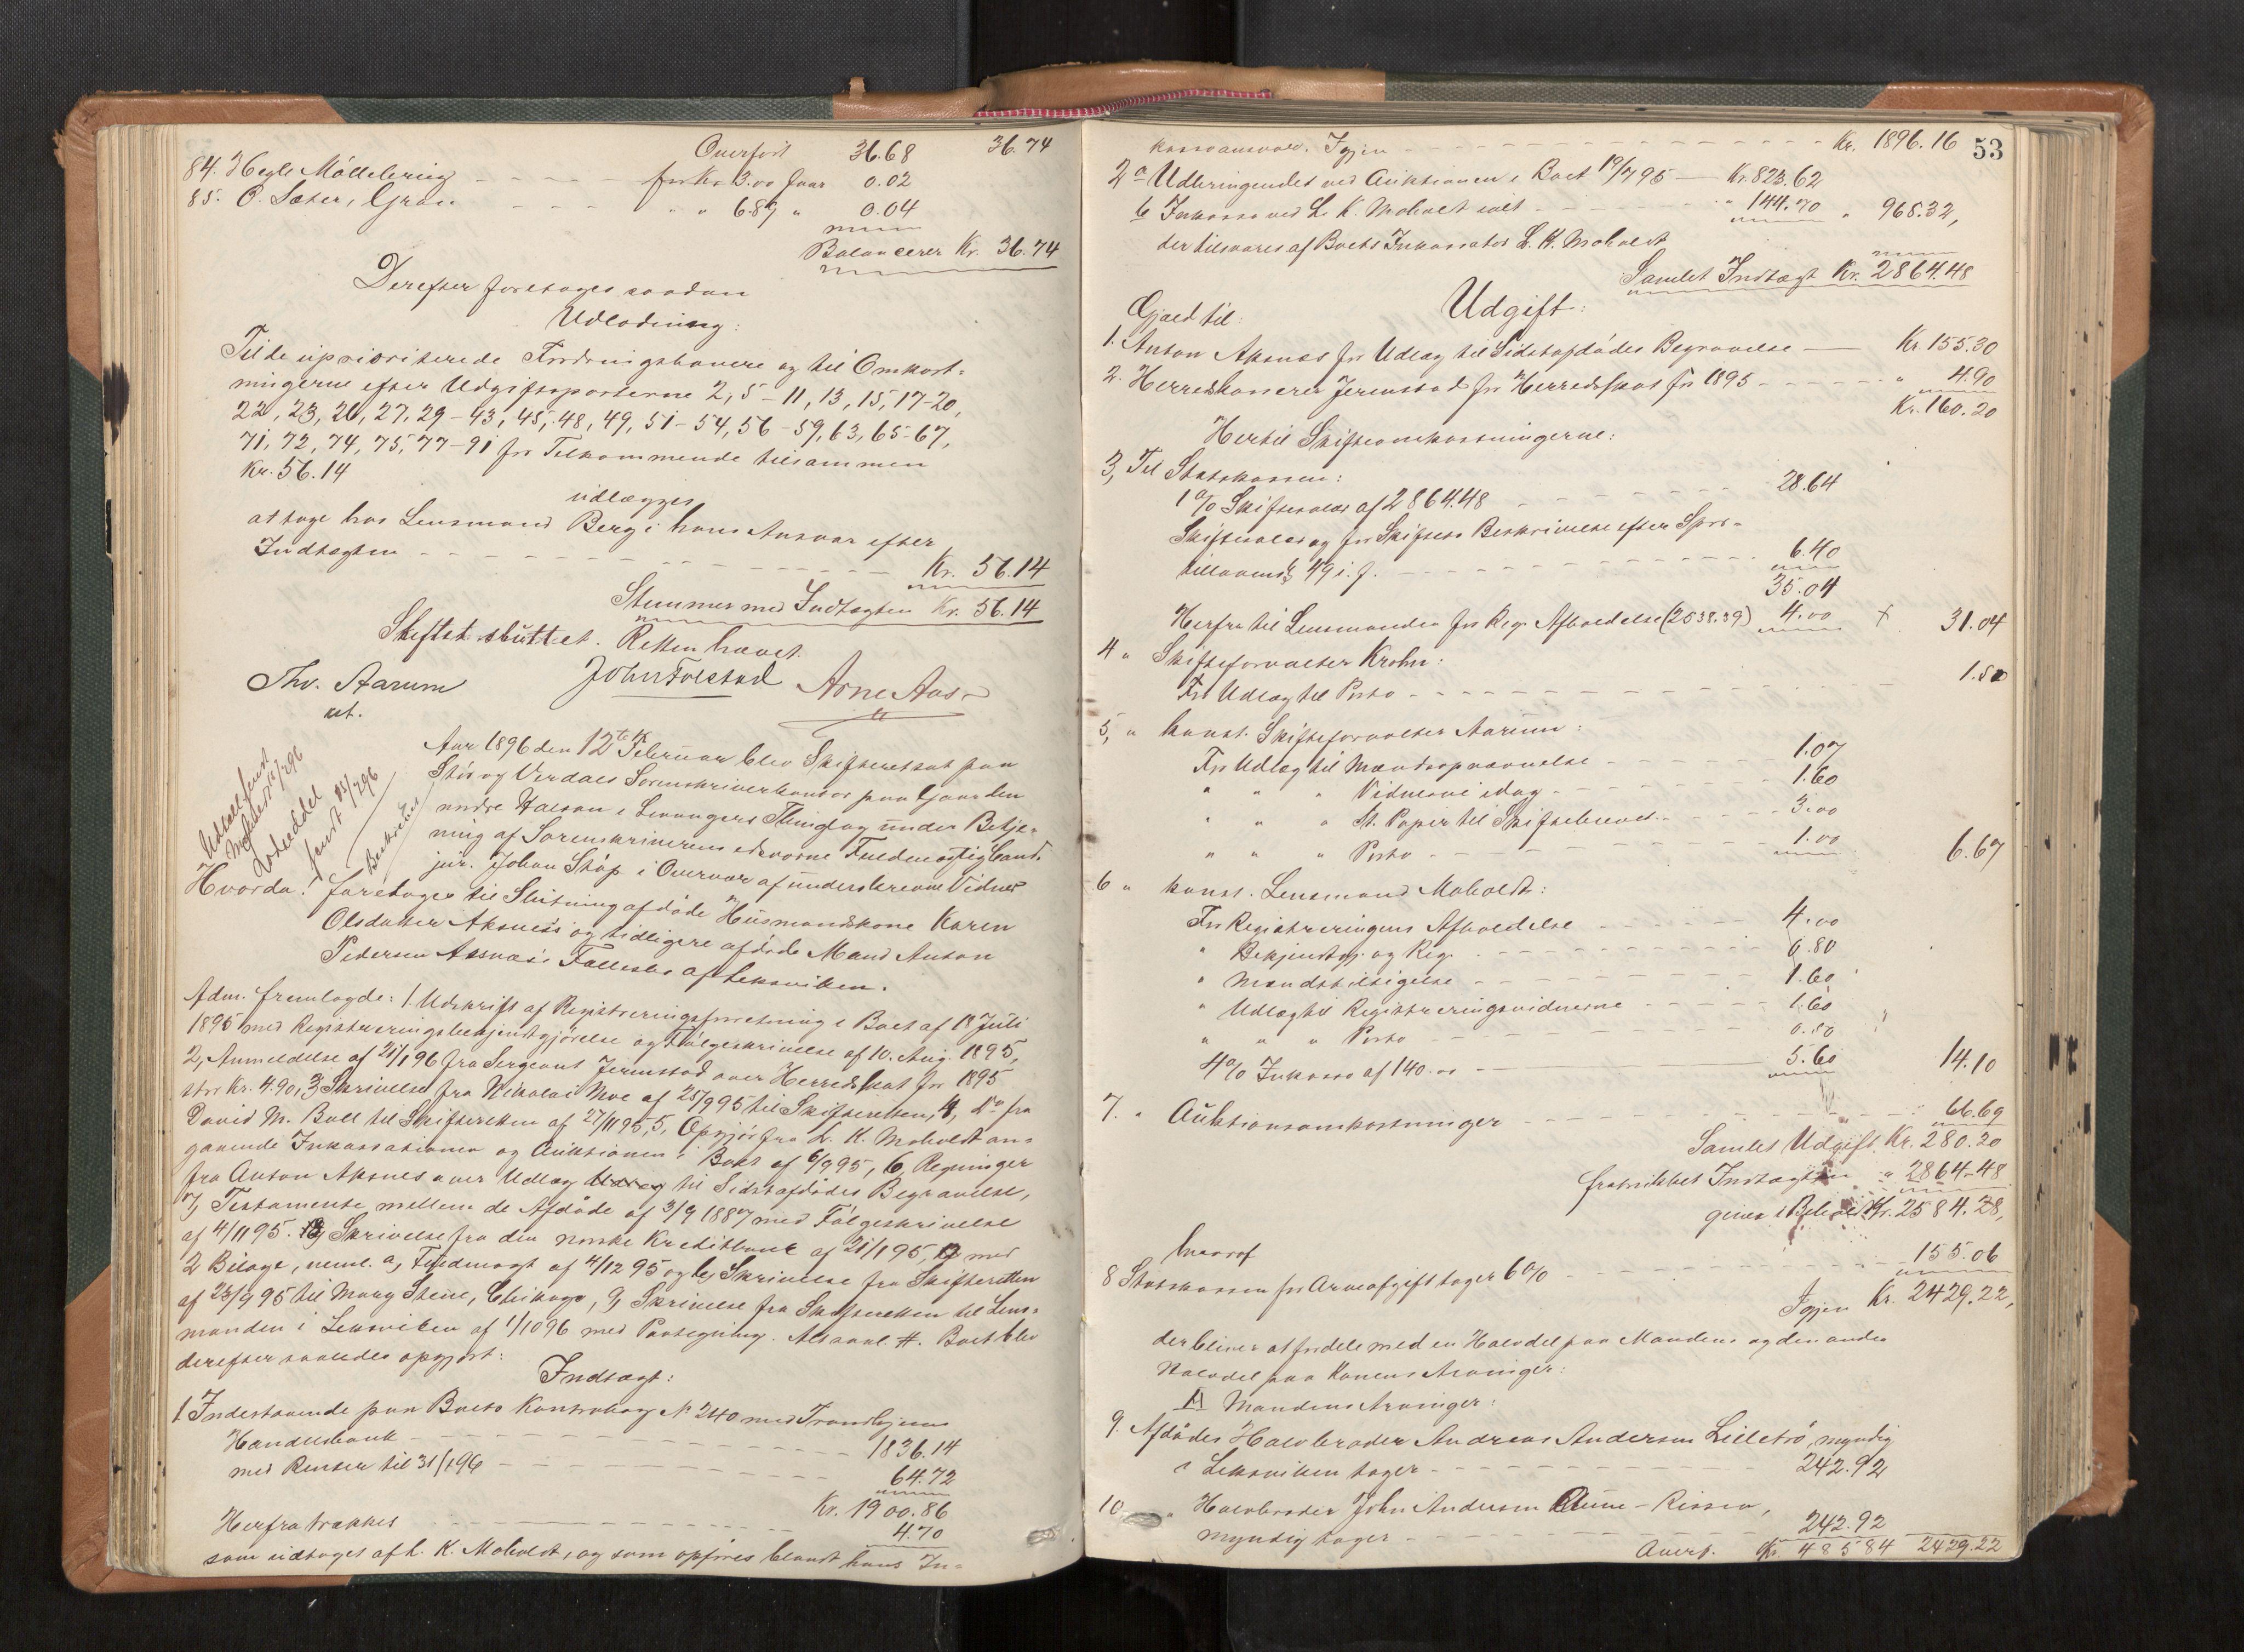 Overført 36.68 36.74
84. Hegle Möllebring - - - - for Kr. 3.00 faar 0.02
85. O. Sæter, Gran - - - " " 6.89 " 0.04
Balancerer Kr. 36.74
Derefter foretoges saadan
Udlodning:
Til de uprioriterede Fordringshavere og til Omkost-
ningerne efter Udgiftsposterne 2, 5-11, 13, 15, 17-20,
22, 23, 26, 27, 29-43, 45, 48, 49, 51-54, 56-59, 63, 65-67,
71, 72, 74, 75, 77-91 for Tilkommende tilsammen
Kr. 56.14
udlægges
at tage hos Lensmand Berg i hans Ansvar efter
Indtægten - - - - - Kr. 56.14
Stemmer med Indtægten Kr. 56.14
Skiftet sluttet. Retten hævet.
Thv. Aarum John Folstad Arne Aas
cst.
Aar 1896 den 12te Februar blev Skifteretsat paa
Stør og Værdals Sorenskriverkontor paa Gaarden
nordre Halsan i Levangers Thinglag under Betje-
ning af Sorenskriverens edsvorne Fuldmægtig Cand.
jur. Johan Støp i Overvær af underskrevne Vidner
Hvorda: foretoges til Slutning afdøde Husmandskone Karen
Olsdatter Aksnes's og tidligere afdøde Mand Anton
Pedersen Aksnæs's Fællesbo af Leksviken.
Adm. fremlagde: 1. Udskrift af Registreringsforretning i Boet af 18 Juli
1895 med Registreringsbekjendtgjørelse og Følgeskrivelse af 10. Aug. 1895,
2, Anmeldelse af 21/1 96 fra Sergeant Jermstad over Herredskat for 1895
stor Kr. 4.90, 3, Skrivelse fra Nikolai Moe af 25/9 95 til Skifteretten, 4, do fra
David M. Bull til Skifteretten af 27/11 95, 5, Opgjør fra L. K. Moholdt an-
gaaende Inkassationen og Auktionen i Boet af 6/9 95, 6, Regninger
fra Anton Aksnes over Udlæg Udlæg til Sidstafdødes Begravelse,
7, Testamente mellem de Afdøde af 3/9 1887 med Følgeskrivelse
af 4/11 95. 8, Skrivelse fra den norske Kreditbank af 21/1 95, med
2 Bilage, neml. a, Fuldmagt af 4/12 95 og b, Skrivelse fra Skifteretten
af 23/9 95 til Mary Stene, Chikago, 9, Skrivelse fra Skifteretten til Lens-
manden i Leksviken af 1/10 96 med Paategning. Alsaal. #. Boet blev
derefter saaledes opgjort:
Indtægt:
1 Indestaaende paa Boets Kontrabog No 240 med Trondhjems
Handelsbank - - - - 1836.14
med Renter til 31/1 96 - - - - 64.72
Kr. 1900.86
Herfra trækkes - - - - 4.70
som udtoges af L. K. Moholdt, og som opføres blandt hans In-
kassoansvar. Igjen - - - - Kr. 1896.16 53
2 a Udbringendet ved Auktionen i Boet 19/7 95 — Kr. 823.62
b Inkasso ved L. K. Moholdt solt - - - " 144.70 " 968.32,
der tilsvares af Boets Inkassator L. K. Moholdt
Samlet Indtægt Kr. 2864.48
Udgift:
Gjæld til:
1. Anton Aksnæs for Udlæg til Sidstafdødes Begravelse — Kr. 155.30
2. Herredskasserer Jermstad for Herredsskat for 1895 - - - " 4.90
Kr. 160.20
Hertil Skifteomkostningerne:
3, Til Statskassen:
1 % Skiftesalær af 2864.48 - - - 28.64
Skiftesalær og for Skiftets Beskrivelse efter Spor-
tellovens § 49 i. f. - - - 6.40
35.04
Herfra til Lensmanden for Reg. Afholdelse (2538.39) 4.00 + 31.04
4 " Skifteforvalter Krohn:
For Udlæg til Porto - - - 1.50
5, " konst. Skifteforvalter Aarum:
For Udlæg til Mændsopnævnelse - - - 1.07
" " " Vidnerne idag - - - 1.60
" " " St. Papir til Skiftebrevet - - - 3.00
" " " Porto - - - 1.00 6.67
6 " konst. Lensmand Moholdt:
For Registreringens Afholdelse - - - 4.00
" Bekjendtgj. og Reg. - - - 0.80
" Mændstilsigelse - - - 1.60
" Udlæg til Registreringsvidnerne - - - 1.60
" " " Porto - - - 0.50
4 % Inkasso af 140.00 - - - 5.60 14.10
7. " Auktionsomkostninger - - - 66.69
Samlet Udgift Kr. 280.20
fratrukket Indtægten " 2864.48
giver i Behold Kr. 2584.28,
hvoraf
8 Statskassen for Arveafgift tager 6 % - - - 155.06
Igjen Kr. 2429.22,
der bliver at fordele med en Halvdel paa Mandens og den anden
Halvdel paa Konens Arvinger:
A Mandens Arvinger:
9. Afdødes Halvbroder Andreas Andersen Lilletrø, myndig
i Leksviken tager - - - 242.92
10, " Halvbroder John Andersen Rune - Rissen,
myndig tager - - - 242.92
Overf. Kr. 485 84 2429.22
Udsalt sendt
Moholdt 12/2 96
Lodseddel
sendt 15/2 96
Beskrevet